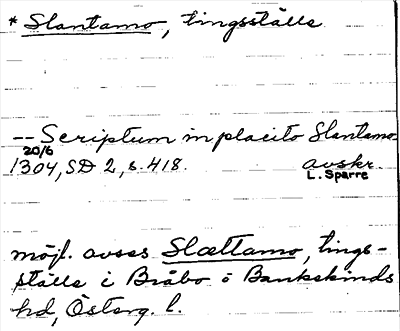 * Slantamo, tingsställe
-- Scriptum in placito Slantamo
20/6
1304, SD 2, s. 418. avskr.
L. Sparre
möjl. avses Slættamo, tings-
ställe i Bråbo o Bankekinds
hd, Österg. l.